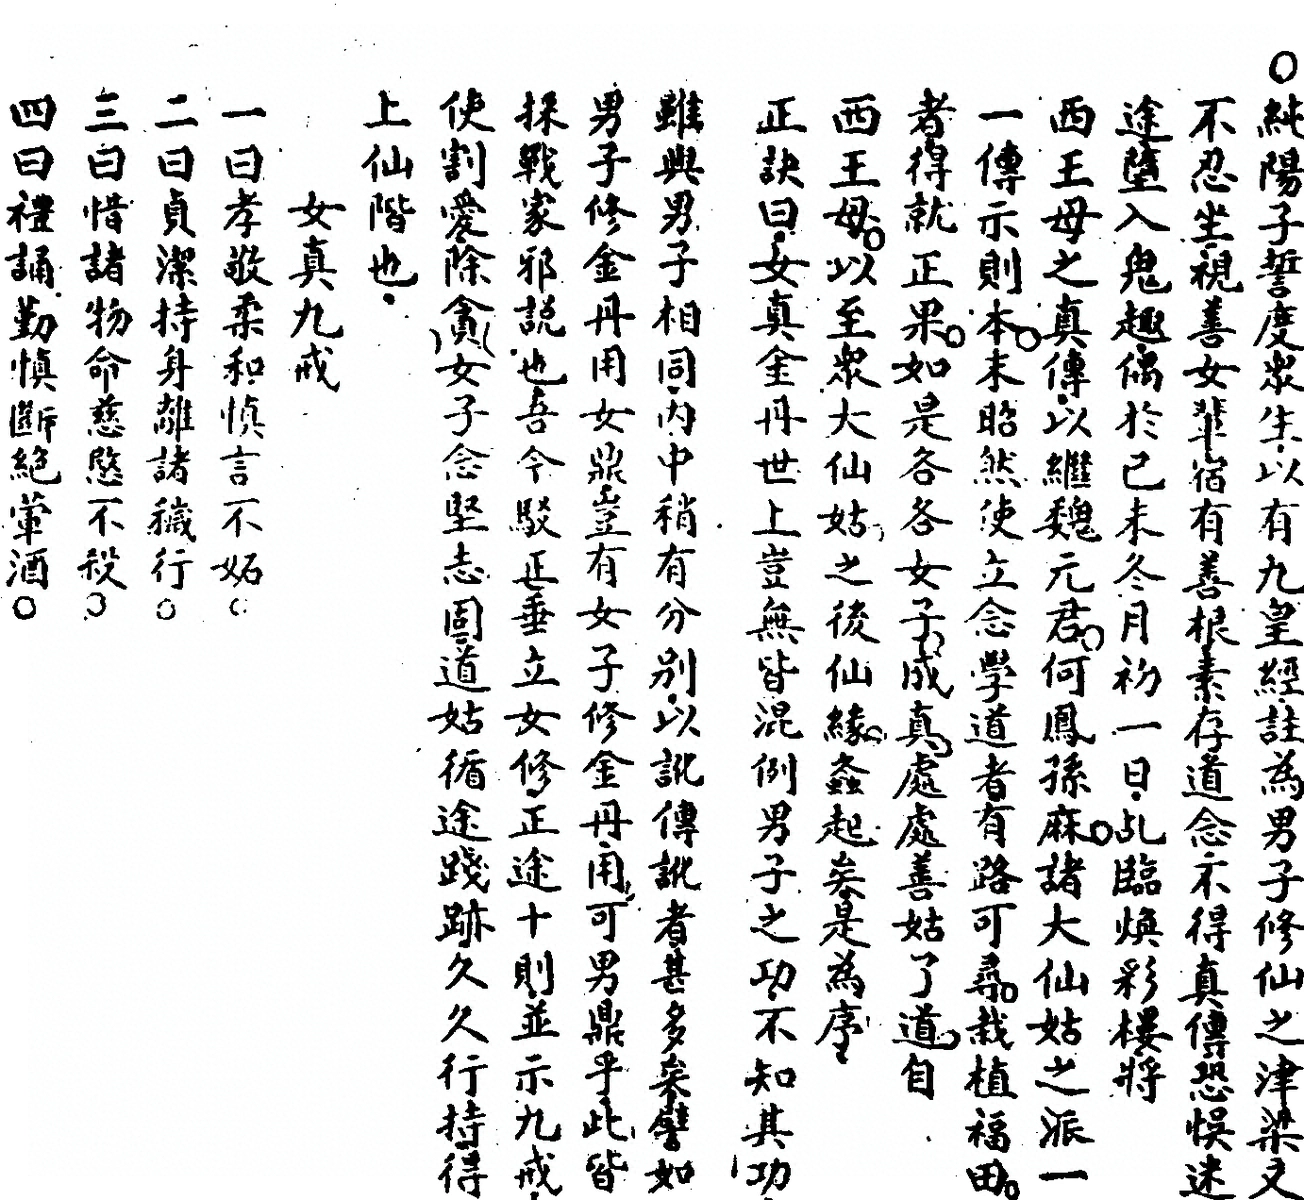 純陽子誓度眾生以有九皇經註為男子修仙之津梁又
不忍坐視善女輩宿有善根素存道念不得真傳恐悞迷
途墮入鬼趣偶於己未冬月初一日乩臨煥彩樓將
西王母之真傳以繼魏元君何鳳孫麻諸大仙姑之派一
一傳示則本末昭然使立念學道者有路可尋栽植福田
者得就正果如是各各女子成真處處善姑了道自
西王母以至眾大仙姑之後仙緣螽起矣是為序
正訣曰女真金丹世上豈無皆混例男子之功不知其功
雖與男子相同內中稍有分別以訛傳訛者甚多矣譬如
男子修金丹用女鼎豈有女子修金丹用可男鼎乎此皆
採戰家邪說也吾今駁正垂立女修正途十則並示九戒
使割愛除貪女子念堅志固道姑循途踐跡久久行持得
上仙階也
女真九戒
一曰孝敬柔和慎言不妬
二曰貞潔持身離諸穢行
三曰惜諸物命慈愍不殺
四曰禮誦勤慎斷絕葷酒